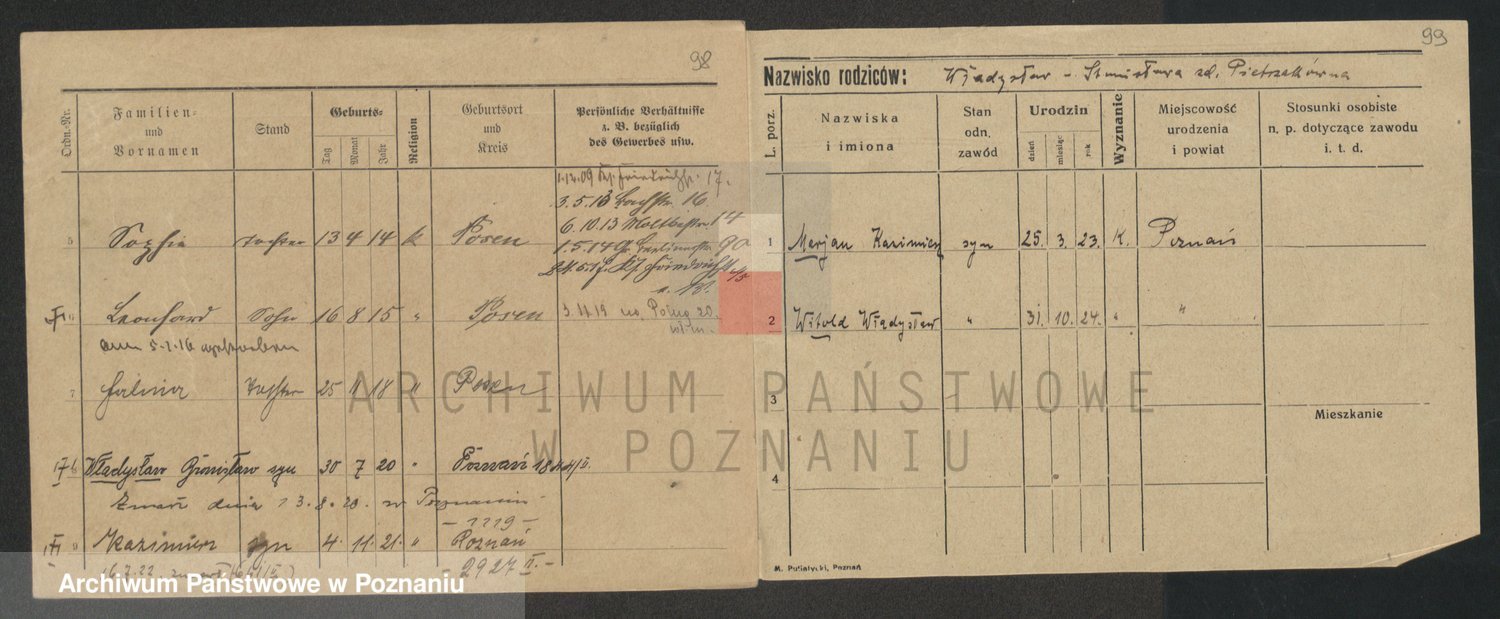 98
Ordn.-Nr.
Familien- und Vornamen
Stand
Geburts-
Tag
Monat
Jahr
Religion
Geburtsort und Kreis
Persönliche Verhältnisse
z. B. bezüglich
des Gewerbes usw.
1.12.09 Friedrichstr. 17.
3.5.13 16
6.10.13 Moltkestr. 14
1.5.14 Gr. Berlinerstr. 90
5 Sophie Tochter 13 4 14 k Posen
6 Leonhard Sohn 16 8 15 " Posen
3.11.19
am 5.1.16 gestorben
7 Halina Tochter 25 11 18 " Posen
Władysław Bronisław syn 30 7 20 " Poznań 1844/II.
Zmarł dnia 13.8.20. w Poznaniu
- 1119 -
Kazimierz syn 4. 11. 21. " Poznań
- 2927 II. -
99
Nazwisko rodziców: Władysław - Stanisława zd. Pietrzakówna
L. porz.
Nazwiska i imiona
Stan odn. zawód
Urodzin
dzień
miesiąc
rok
Wyznanie
Miejscowość urodzenia i powiat
Stosunki osobiste
n. p. dotyczące zawodu
i. t. d.
1 Marjan Kazimierz syn 25. 3. 23. K. Poznań
2 Witold Władysław " 31. 10. 24. " "
3
Mieszkanie
4
M. Putiatycki, Poznań
ARCHIWUM PAŃSTWOWE
W POZNANIU
Archiwum Państwowe w Poznaniu